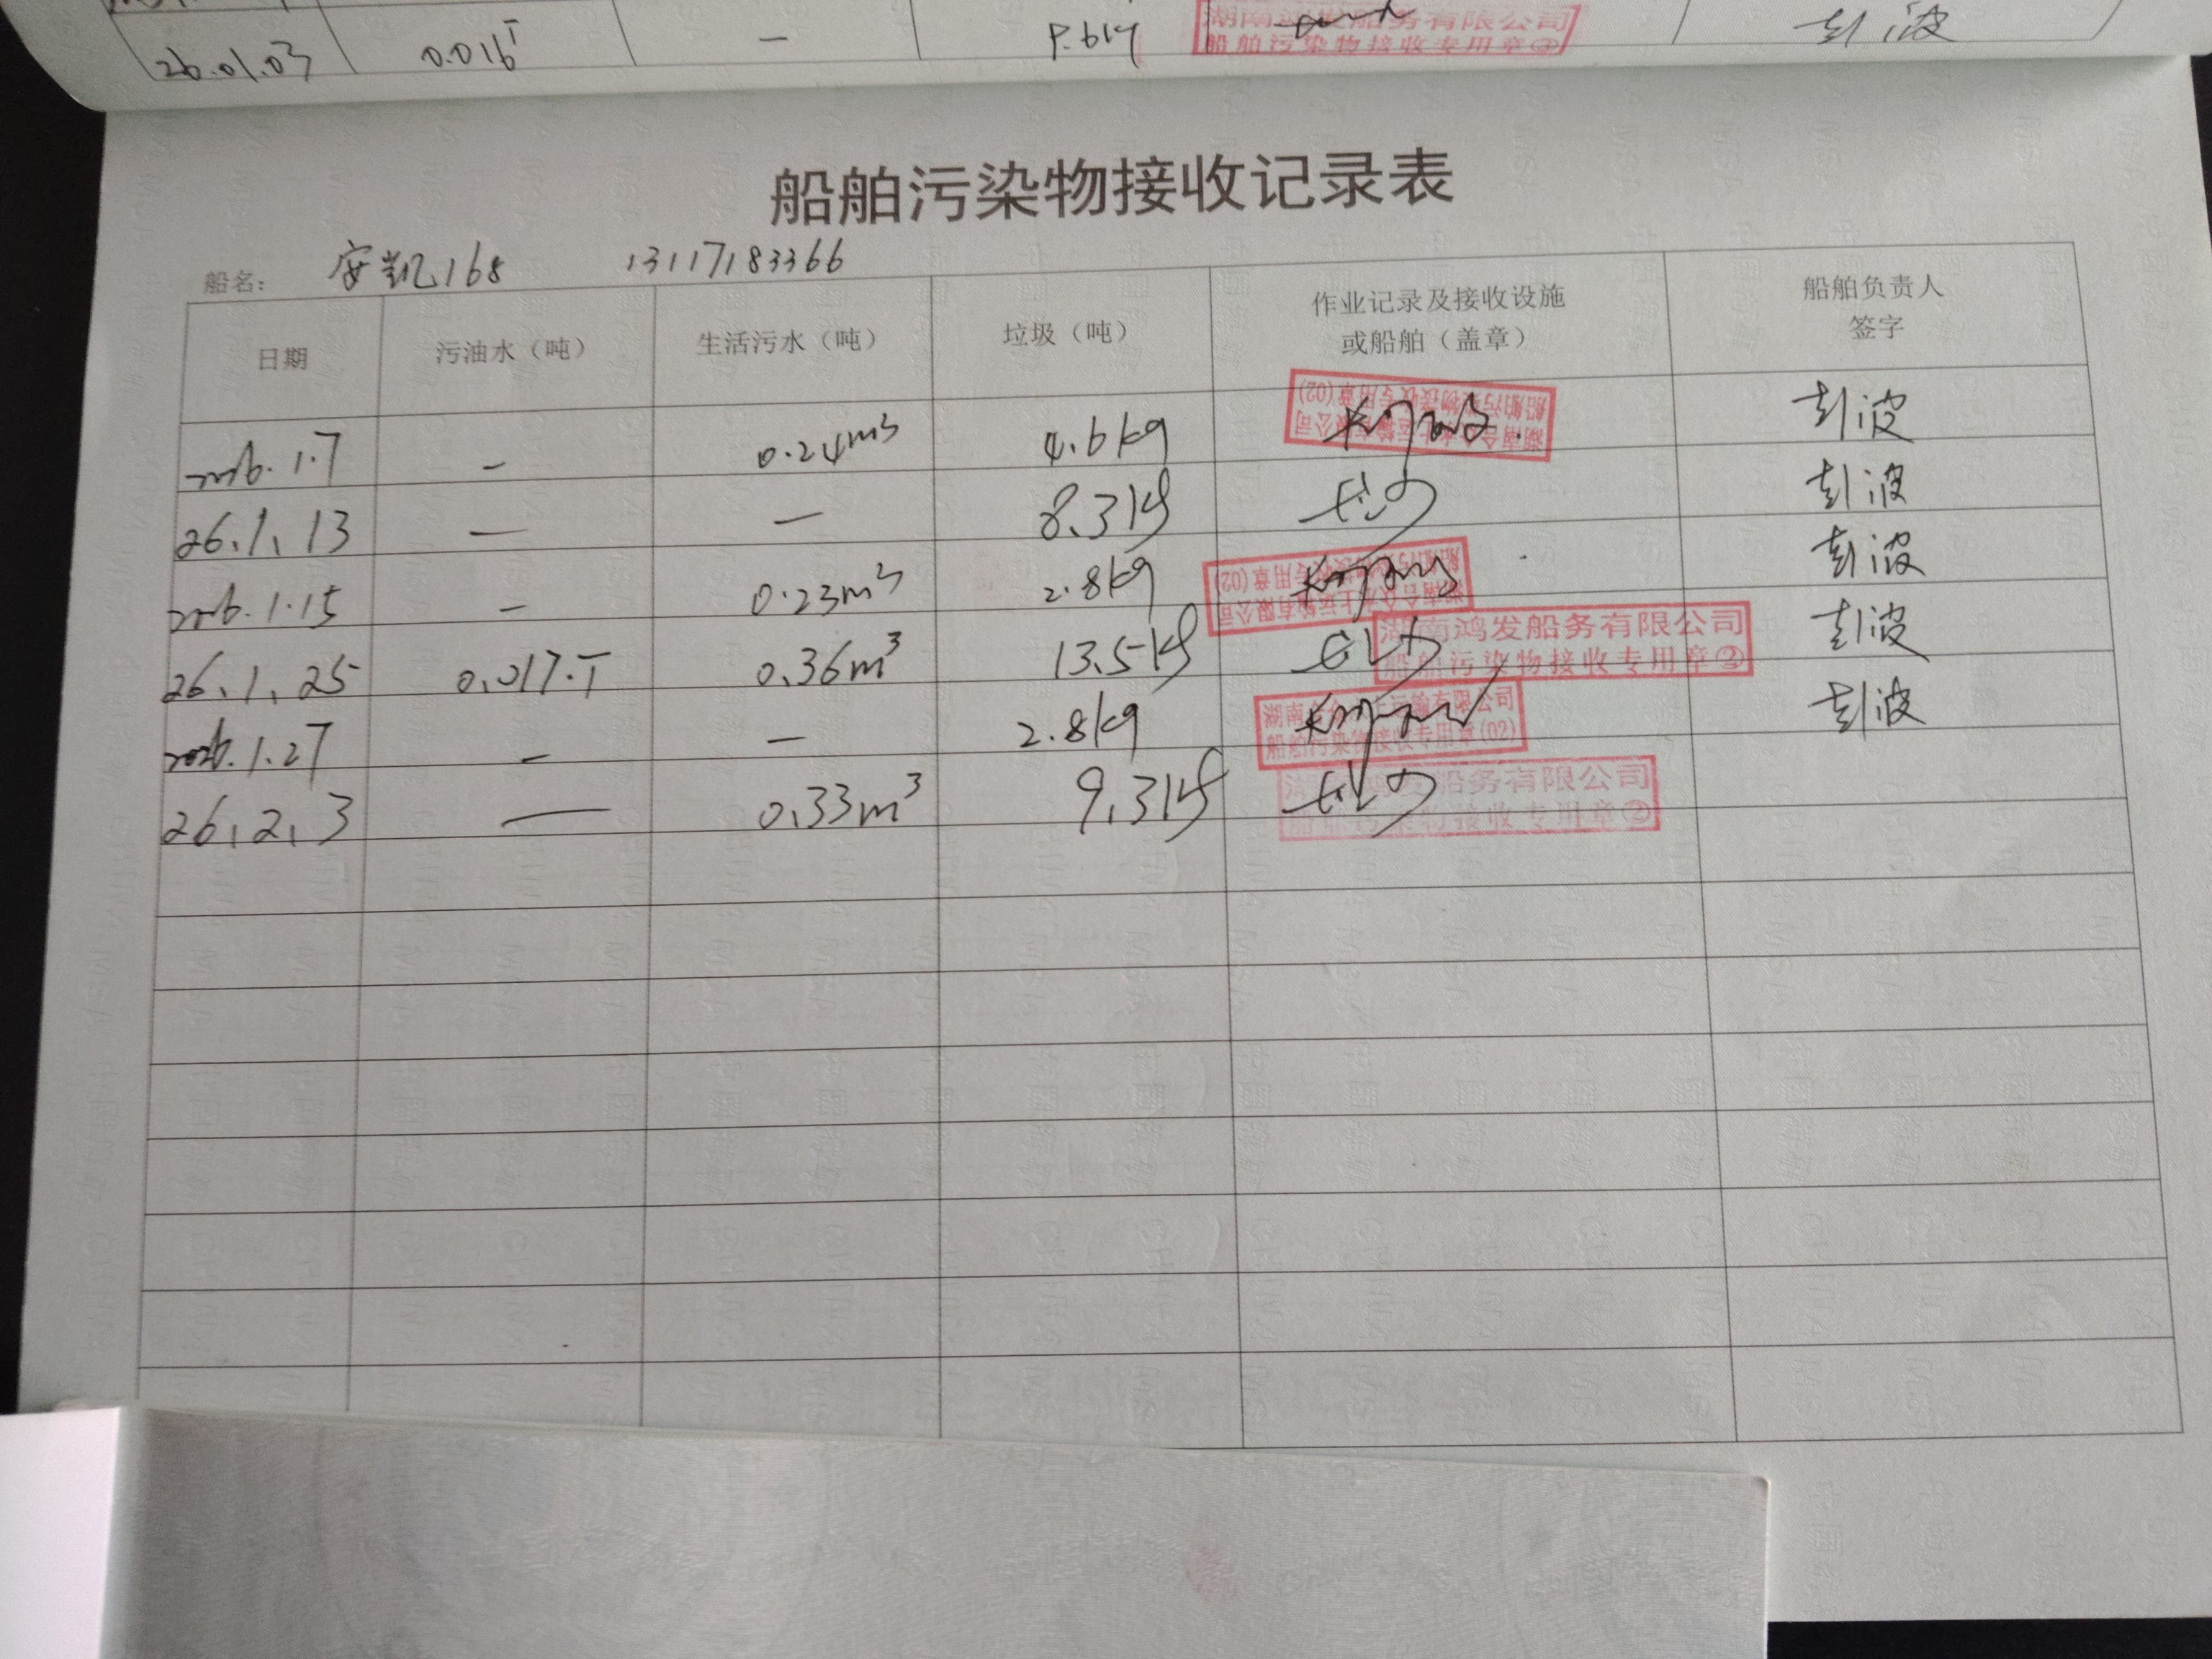 26.01.03 0.016T — 9.6kg 湖南鸿发船务有限公司 彭波
船舶污染物接收专用章②
船舶污染物接收记录表
船名： 安凯168 13117183366
日期 污油水（吨） 生活污水（吨） 垃圾（吨） 作业记录及接收设施或船舶（盖章） 船舶负责人签字
2026.1.7 — 0.24m³ 4.6kg 船舶污染物接收专用章(02) 彭波
26.1.13 — — 8.3kg 彭波
2026.1.15 — 0.23m³ 2.8kg 彭波
26.1.25 0.017.T 0.36m³ 13.5kg 湖南鸿发船务有限公司 船舶污染物接收专用章② 彭波
2026.1.27 — — 2.8kg 船舶污染物接收专用章(02) 彭波
26.2.3 — 0.33m³ 9.3kg 船务有限公司 污染物接收专用章②